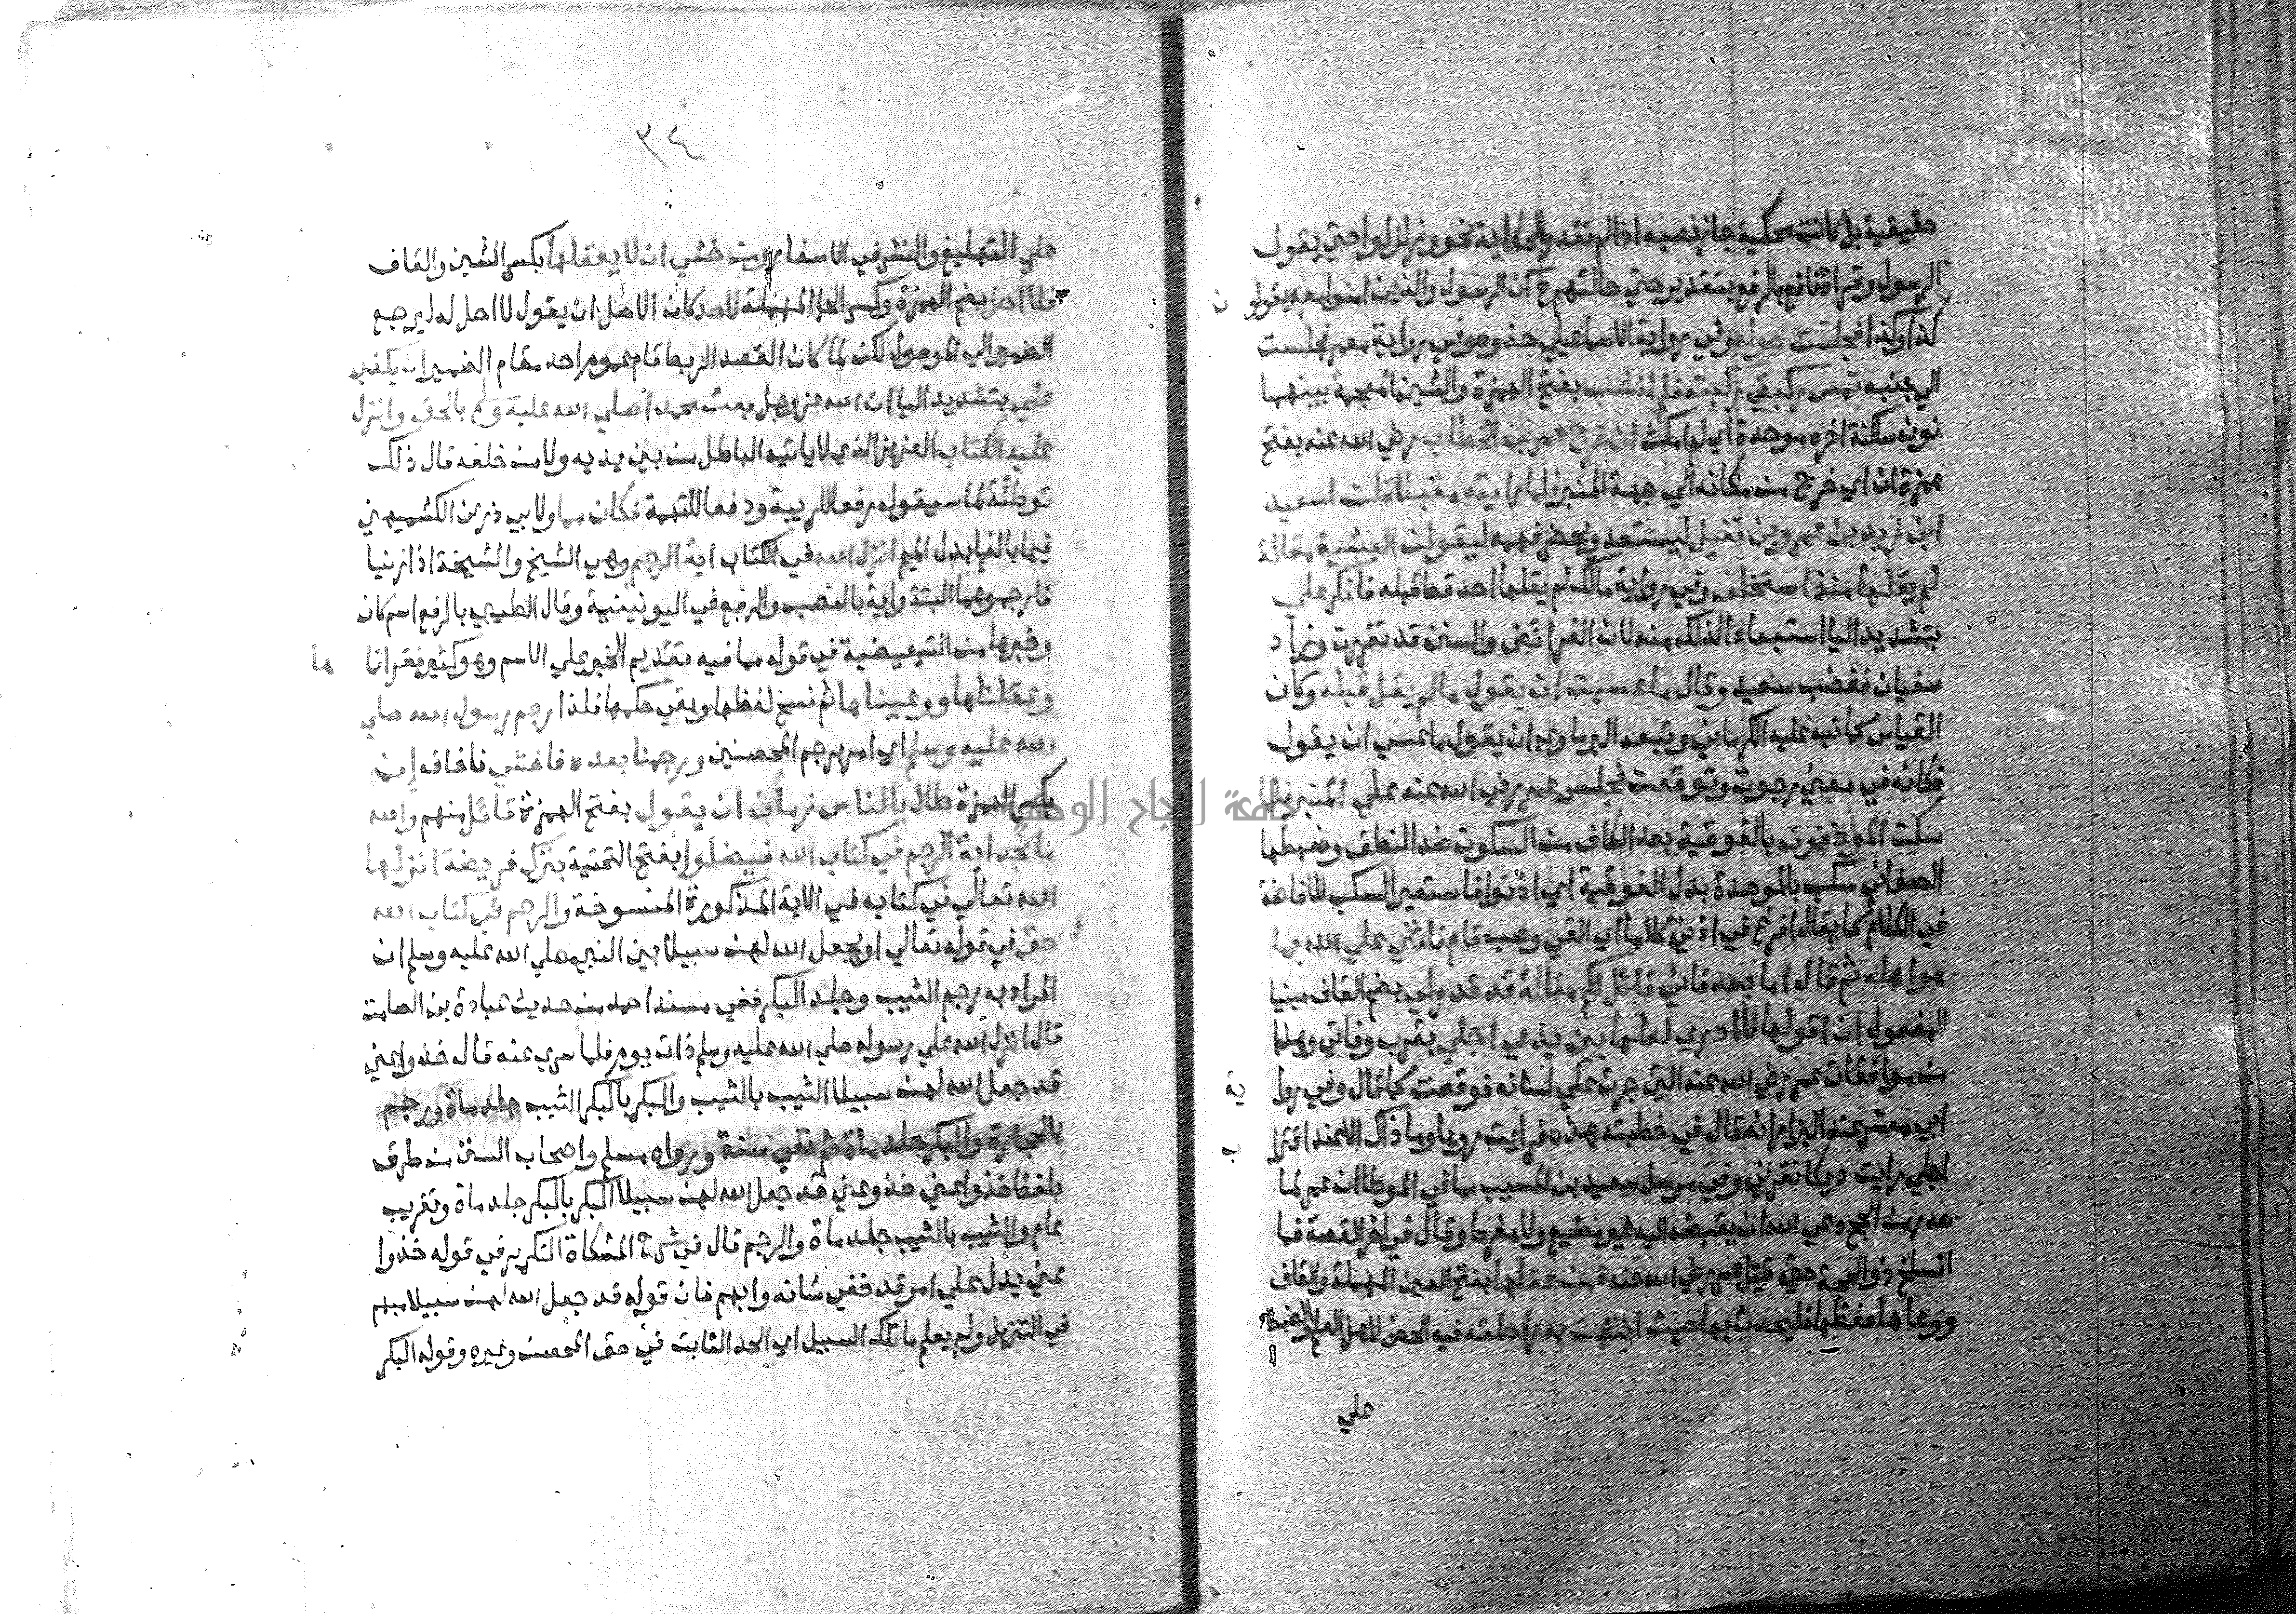 حقيقية بل كانت محكية جاز نصبه اذا لم تقدر الحكاية نحو وزلزلوا حتي يقول
الرسول وقراة نافع بالرفع بتقدير حتي حالتهم ح ان الرسول والذين امنوا معه يقولون
كذا وكذا فجلست حوله وفي رواية الاسماعيلي حذوه وفي رواية معمر فجلست
الي جنبه تمس ركبتي ركبته فلم انشب بفتح الهمزة والشين المعجمة بينهما
نون ساكنة اخره موحدة اي لم امكث ان خرج عمر بن الخطاب رضي الله عنه بفتح
همزة ان اي خرج من مكانه الي جهة المنبر فلما رايته مقبلا قلت لسعيد
ابن زيد بن عمرو بن نفيل ليستعد ويحضر فهمه ليقولن العشية مقالة
لم يقلها منذ استخلف وفي رواية مالك لم يقلها احد قط قبله فانكر علي
بتشديد اليا استبعادا لذلك منه لان الفرائض والسنن قد تقررت وزاد
سفيان فغضب سعيد وقال ما عسيت ان يقول ما لم يقل قبله وكان
القياس كما نبه عليه الكرماني وتبعه البرماوي ان يقول ما عسي ان يقول
فكانه في معني رجوت وتوقعت فجلس عمر رضي الله عنه علي المنبر فلما
سكت الموذنون بالفوقية بعد الكاف من السكوت ضد النطق وضبطها
الصغاني سكب بالموحدة بدل الفوقية اي اذنوا فاستعير السكب للافاضة
في الكلام كما يقال افرغ في اذني كلاما اي القي وصب قام فاثني علي الله بما
هو اهله ثم قال اما بعد فاني قائل لكم مقالة قد قدر لي بضم القاف مبنيا
للمفعول ان اقولها لا ادري لعلها بين يدي اجلي بقرب وفاتي وهذا
من موافقات عمر رضي الله عنه التي جرت علي لسانه فوقعت كما قال وفي رواية
ابي معشر عند البزار انه قال في خطبته هذه فرايت رويا وما ذاك الا عند اقتراب
اجلي رايت ديكا نقرني وفي مرسل سعيد بن المسيب مما في الموطا ان عمر لما
صدر من الحج دعي الله ان يقبضه اليه غير مضيع ولا مفرط وقال في اخر القصة فما
انسلخ ذو الحجة حتي قتل عمر رضي الله عنه فمن عقلها بفتح العين المهملة والقاف
ووعاها حفظها فليحدث بها حيث انتهت به راحلته فيه الحض لاهل العلم والضبط
علي
٣٤
علي التبليغ والنشر في الاسفار ومن خشي ان لا يعقلها بكسر الشين والقاف
فلا احل بضم الهمزة وكسر الحا المهملة لاحد كان الاصل ان يقول لا احل له ليرجع
الضمير الي الموصول لكن لما كان القصد الربط قام عموم احد مقام الضمير ان يكذب
علي بتشديد اليا ان الله عز وجل بعث محمدا صلي الله عليه وسلم بالحق وانزل
عليه الكتاب العزيز الذي لا ياتيه الباطل من بين يديه ولا من خلفه قال ذلك
توطئة لما سيقوله رفعا للريبة ودفعا للتهمة فكان مما ولابي ذر عن الكشميهني
فيما بالفا بدل الميم انزل الله في الكتاب اية الرجم وهي الشيخ والشيخة اذا زنيا
فارجموهما البتة واية بالنصب والرفع في اليونينية وقال الطيبي بالرفع اسم كان
وخبرها من التبعيضية في قوله مما فيه تقديم الخبر علي الاسم وهو كثير فقراناها
وعقلناها ووعيناها ثم نسخ لفظها وبقي حكمها فلذا رجم رسول الله صلي
الله عليه وسلم اي امر برجم المحصنين ورجمنا بعده فاخشي فاخاف إن
بكسر الهمزة طال بالناس زمان ان يقول بفتح الهمزة قائل منهم والله
ما نجد اية الرجم في كتاب الله فيضلوا بفتح التحتية بترك فريضة انزلها
الله تعالي في كتابه في الاية المذكورة المنسوخة والرجم في كتاب الله
حق في قوله تعالي او يجعل الله لهن سبيلا بين النبي صلي الله عليه وسلم ان
المراد به رجم الثيب وجلد البكر ففي مسند احمد من حديث عبادة بن الصامت
قال انزل الله علي رسوله صلي الله عليه وسلم ذات يوم فلما سري عنه قال خذوا عني
قد جعل الله لهن سبيلا الثيب بالثيب والبكر بالبكر الثيب جلد ماة ورجم
بالحجارة والبكر جلد ماة ثم نفي سنة ورواه مسلم واصحاب السنن من طرق
بلفظ خذوا عني خذوا عني قد جعل الله لهن سبيلا البكر بالبكر جلد ماة وتغريب
عام والثيب بالثيب جلد ماة والرجم قال في شرح المشكاة التكرير في قوله خذوا
عني يدل علي امر قد خفي شانه وابهم فان قوله قد جعل الله لهن سبيلا مبهم
في التنزيل ولم يعلم ما تلك السبيل اي الحد الثابت في حق المحصن وغيره وقوله البكر
جامعة النجاح الوطنية